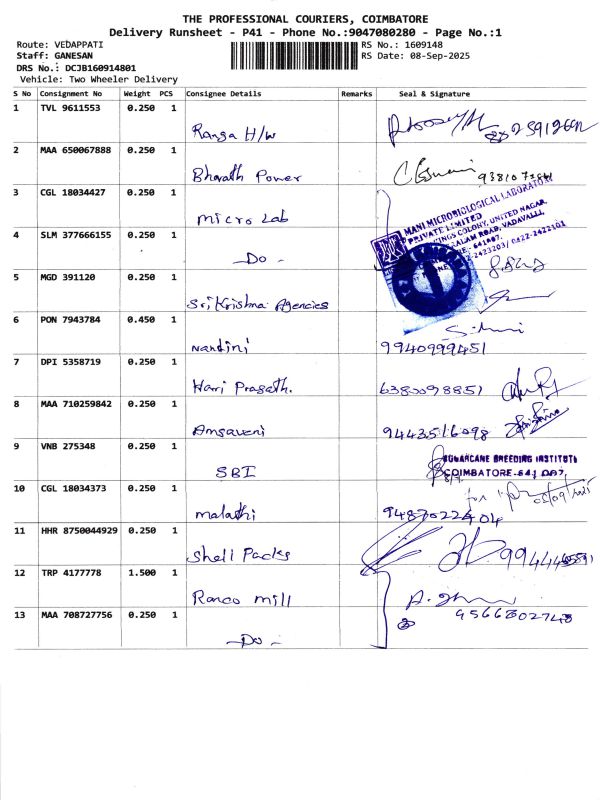 THE PROFESSIONAL COURIERS, COIMBATORE
Delivery Runsheet - P41 - Phone No.:9047080280 - Page No.:1
Route: VEDAPPATI
RS No.: 1609148
Staff: GANESAN
RS Date: 08-Sep-2025
DRS No.: DCJB160914801
Vehicle: Two Wheeler Delivery
S No Consignment No Weight PCS Consignee Details Remarks Seal & Signature
1 TVL 9611553 0.250 1
Ranga H/w
2 MAA 650067888 0.250 1
Bharath Power
3 CGL 18034427 0.250 1
micro Lab
MANI MICROBIOLOGICAL LABORATORY
PRIVATE LIMITED
4 SLM 377666155 0.250 1
-Do-
5 MGD 391120 0.250 1
Sri Krishna Agencies
6 PON 7943784 0.450 1
Nandini 9940999451
7 DPI 5358719 0.250 1
Hari Prasath. 6380098851
8 MAA 710259842 0.250 1
Amsaveni 9443516098
9 VNB 275348 0.250 1
SBI
SUGARCANE BREEDING INSTITUTE
COIMBATORE-641 007.
10 CGL 18034373 0.250 1
malathi 9487022404
11 HHR 8750044929 0.250 1
Shell Packs
12 TRP 4177778 1.500 1
Ranco mill
13 MAA 708727756 0.250 1
-Do-